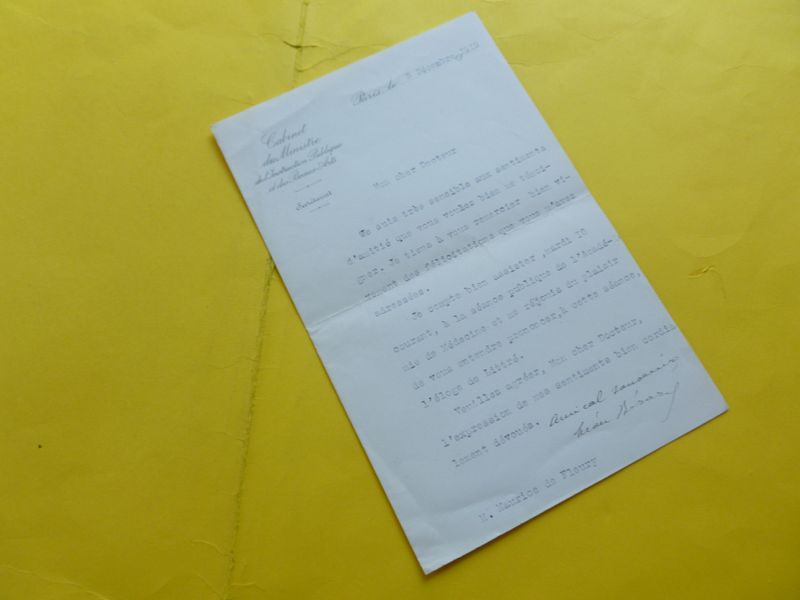 Paris, le 5 Décembre, 1919
Cabinet
du Ministre
de l'Instruction Publique
et des Beaux-Arts
Secrétariat
Mon cher Docteur
Je suis très sensible aux sentiments
d'amitié que vous voulez bien me témoi-
gner. Je tiens à vous remercier bien vi-
vement des félicitations que vous m'avez
adressées.
Je compte bien assister ,mardi 10
courant, à la séance publique de l'Acadé-
mie de Médecine et me réjouis du plaisir
de vous entendre prononcer,à cette séance,
l'éloge de Littré.
Veuillez agréer, Mon cher Docteur,
l'expression de mes sentiments bien cordia
lement dévoués. Amical souvenir
Léon Bérard
M. Maurice de Fleury